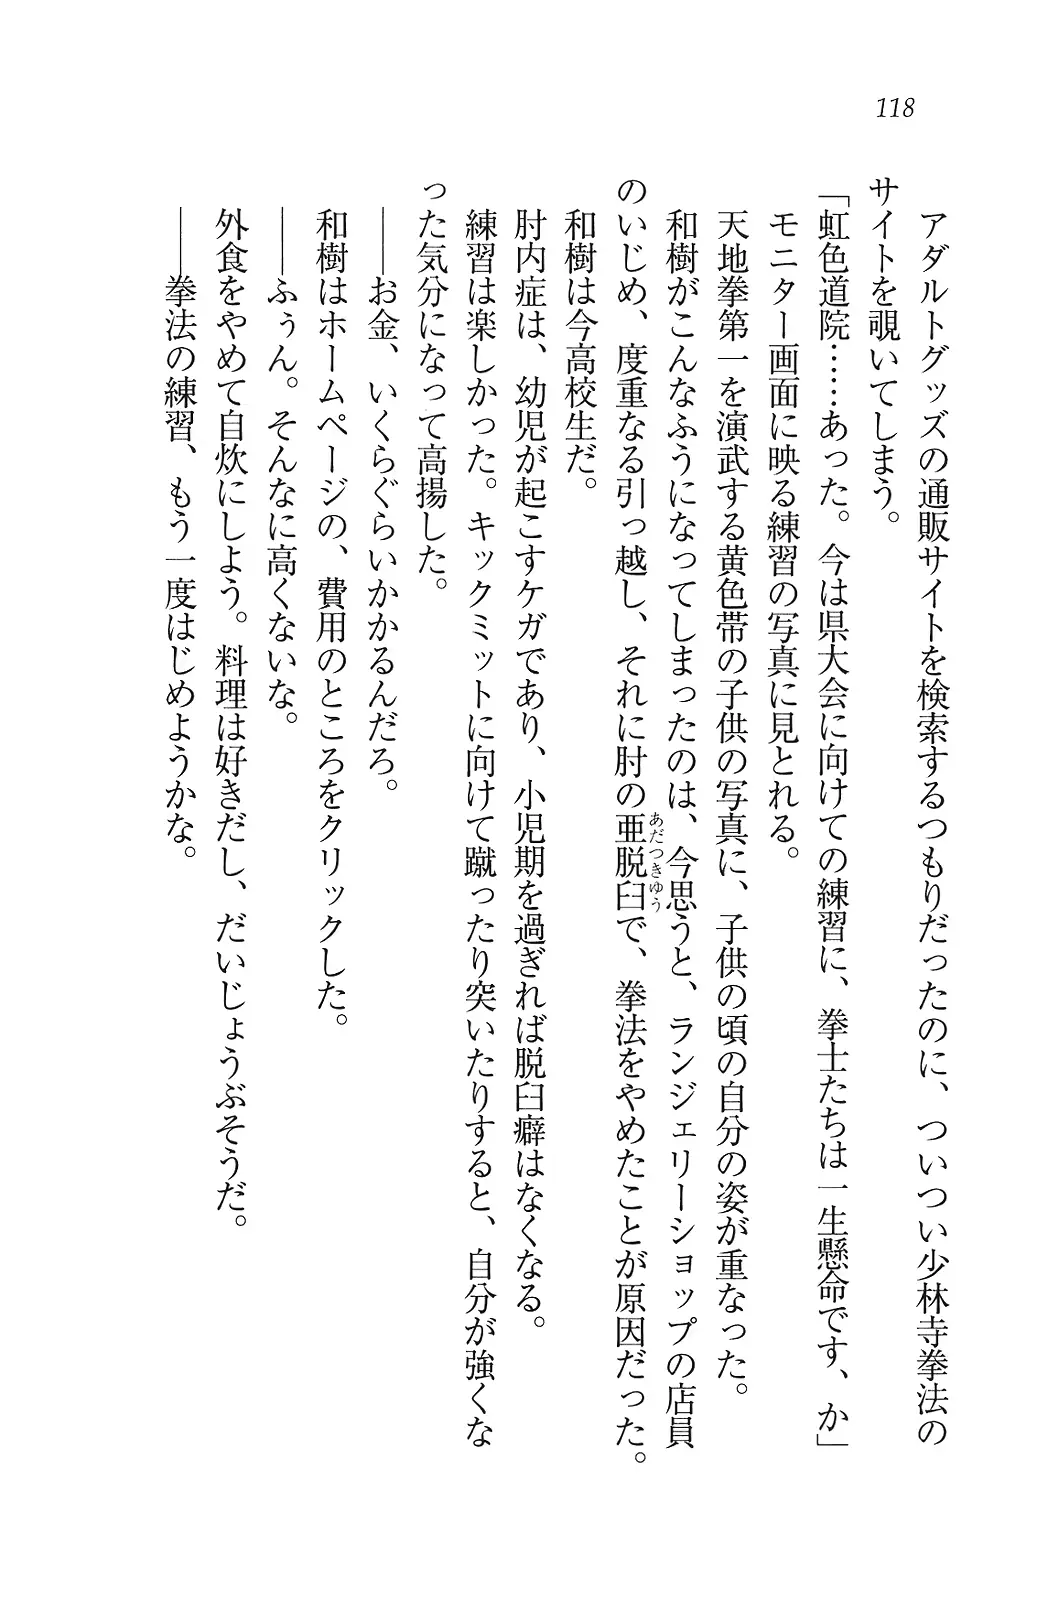 118
　アダルトグッズの通販サイトを検索するつもりだったのに、ついつい少林寺拳法の
サイトを覗いてしまう。
「虹色道院……あった。今は県大会に向けての練習に、拳士たちは一生懸命です、か」
　モニター画面に映る練習の写真に見とれる。
　天地拳第一を演武する黄色帯の子供の写真に、子供の頃の自分の姿が重なった。
　和樹がこんなふうになってしまったのは、今思うと、ランジェリーショップの店員
のいじめ、度重なる引っ越し、それに肘の亜脱臼で、拳法をやめたことが原因だった。
あだつきゆう
　和樹は今高校生だ。
　肘内症は、幼児が起こすケガであり、小児期を過ぎれば脱臼癖はなくなる。
　練習は楽しかった。キックミットに向けて蹴ったり突いたりすると、自分が強くな
った気分になって高揚した。
　――お金、いくらぐらいかかるんだろ。
　和樹はホームページの、費用のところをクリックした。
　――ふぅん。そんなに高くないな。
　外食をやめて自炊にしよう。料理は好きだし、だいじょうぶそうだ。
　――拳法の練習、もう一度はじめようかな。